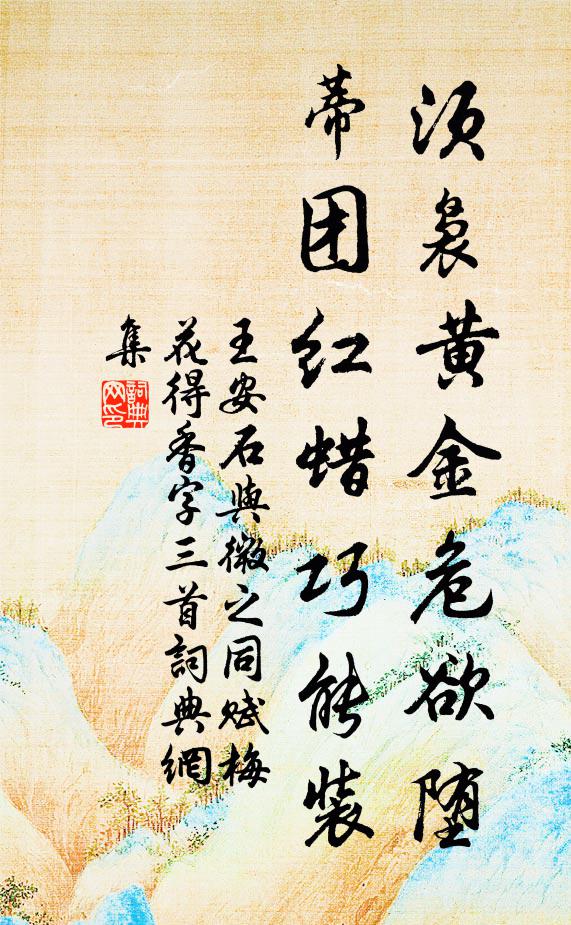 须袅黄金危欲堕
蒂团红蜡巧能装
王安石與微之同赋梅
花得香字三首詞典網
集
詞典網印